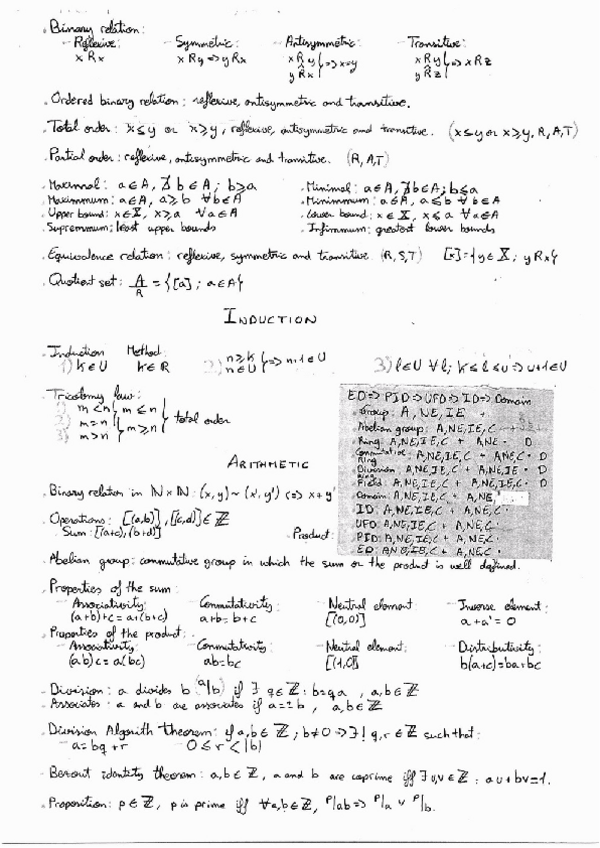 . Binary relation:
- Reflexive: - Symmetric: - Antisymmetric: - Transitive:
x R x x R y => y R x x R y } => x=y x R y } => x R z
y R x y R z
. Ordered binary relation: reflexive, antisymmetric and transitive.
. Total order: x ≤ y or x ≥ y, reflexive, antisymmetric and transitive. (x ≤ y or x ≥ y, R, A, T)
. Partial order: reflexive, antisymmetric and transitive. (R, A, T)
. Maximal: a ∈ A, ∄ b ∈ A; b ≥ a . Minimal: a ∈ A, ∄ b ∈ A; b ≤ a
. Maximmum: a ∈ A, a ≥ b ∀b ∈ A . Minimmum: a ∈ A, a ≤ b ∀b ∈ A
. Upper bound: x ∈ X, x ≥ a ∀a ∈ A . Lower bound: x ∈ X, x ≤ a ∀a ∈ A
. Supremmum: least upper bounds . Infimmum: greatest lower bounds
. Equivalence relation: reflexive, symmetric and transitive (R, S, T) [x] = {y ∈ X; y R x}
. Quotient set: A/R = {[a]; a ∈ A}
INDUCTION
. Induction Method:
1) k ∈ U k ∈ R 2) n ≥ k } => n+1 ∈ U 3) l ∈ U ∀l; k ≤ l ≤ u => u+1 ∈ U
n ∈ U
. Tricotomy law:
1) m < n } m ≤ n
2) m = n } total order
3) m > n } m ≥ n
ED => PID => UFD => ID => Domain
. Group: A, NE, IE +
. Abelian group: A, NE, IE, C +
. Ring: A, NE, IE, C + A, NE · D
. Commutative Ring A, NE, IE, C + A, NE, C · D
. Division A, NE, IE, C + A, NE, IE · D
. Field A, NE, IE, C + A, NE, IE, C · D
. Domain: A, NE, IE, C + A, NE,
. ID: A, NE, IE, C + A, NE, C ·
. UFD: A, NE, IE, C + A, NE, C ·
. PID: A, NE, IE, C + A, NE, C ·
. ED: A, NE, IE, C + A, NE, C ·
ARITHMETIC
. Binary relation in N×N: (x, y) ~ (x', y') <=> x + y'
. Operations: [(a,b)], [(c,d)] ∈ Z
- Sum: [(a+c), (b+d)] Product:
. Abelian group: commutative group in which the sum or the product is well defined.
. Properties of the sum:
- Associativity: - Conmutativity: - Neutral element - Inverse element:
(a+b)+c = a+(b+c) a+b = b+c [(0,0)] a+a' = 0
. Properties of the product:
- Associativity: - Conmutativity: - Neutral element: - Distributivity:
(ab)c = a(bc) ab = bc [(1,0)] b(a+c) = ba+bc
. Division: a divides b (a|b) if ∃ q ∈ Z: b = qa, a,b ∈ Z
. Associates: a and b are associates if a = ±b, a,b ∈ Z
. Division Algorith theorem: if a,b ∈ Z; b ≠ 0 => ∃! q, r ∈ Z such that:
- a = bq + r 0 ≤ r < |b|
. Bezout identity theorem: a,b ∈ Z, a and b are coprime iff ∃ u,v ∈ Z: au + bv = 1.
. Proposition: p ∈ Z, p is prime iff ∀a,b ∈ Z, p|ab => p|a ∨ p|b.